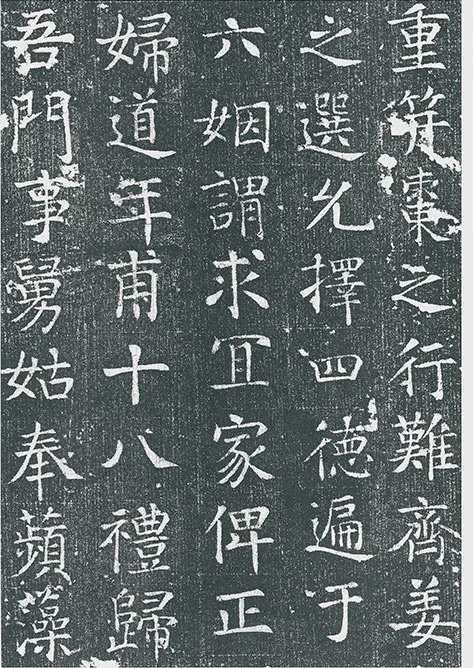 重笄棗之行難齊姜
之選允擇四徳遍于
六姻謂求冝家俾正
婦道年甫十八禮歸
吾門事舅姑奉蘋藻